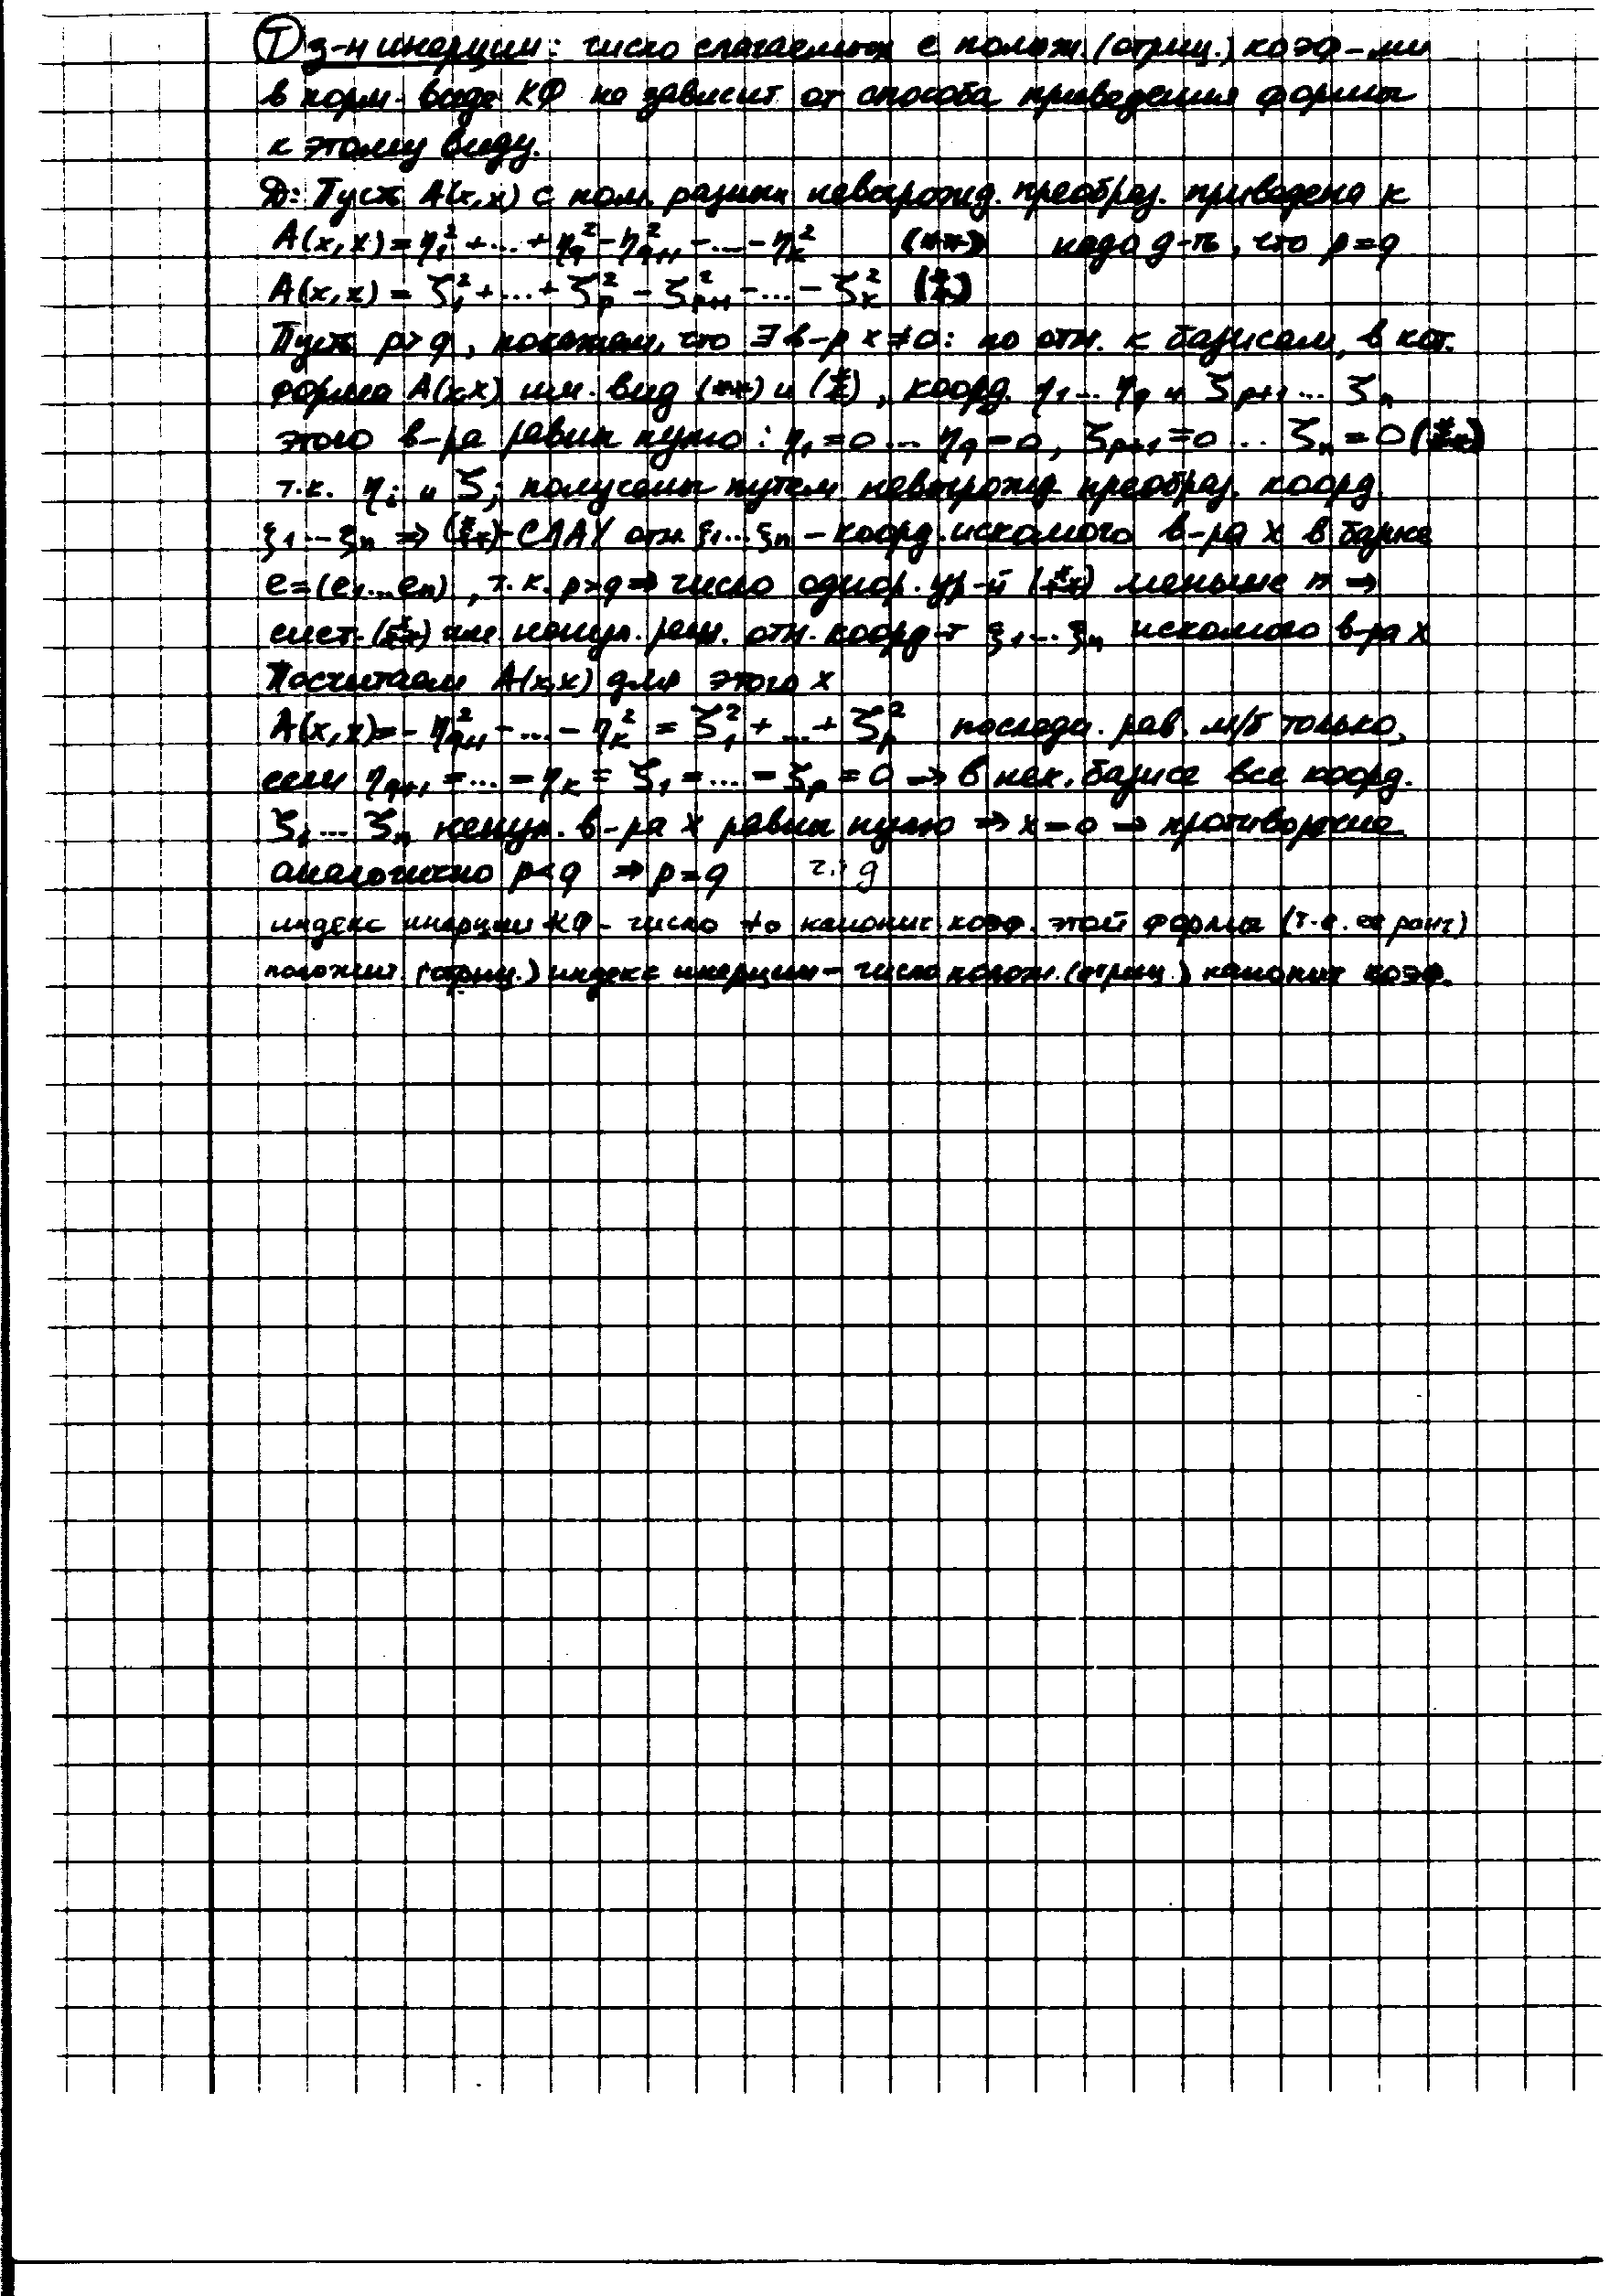 Т з-н инерции: число слагаемых с полож. (отриц.) коэф-ми
в норм. виде КФ не зависит от способа приведения формы
к этому виду.
Д: Пусть A(x,x) с пом. разных невырожд. преобраз. приведена к
A(x,x) = η₁² + ... + η_q² - η_{q+1}² - ... - η_k² (**) надо д-ть, что p = q
A(x,x) = ζ₁² + ... + ζ_p² - ζ_{p+1}² - ... - ζ_k² (*/*)
Пусть p > q, покажем, что ∃ в-р x ≠ 0: по отн. к базисам, в кот.
форма A(x,x) им. вид (**) и (*/*), коорд. η₁ ... η_q и ζ_{p+1} ... ζ_n
этого в-ра равны нулю: η₁ = 0 ... η_q = 0, ζ_{p+1} = 0 ... ζ_n = 0 (*/**)
т.к. η_i и ζ_j получены путем невырожд. преобраз. коорд.
ξ₁ ... ξ_n ⇒ (*/**) - СЛАУ отн. ξ₁ ... ξ_n - коорд. искомого в-ра x в базисе
e = (e₁ ... e_n), т.к. p > q ⇒ число однор. ур-й (*/**) меньше n ⇒
сист. (*/**) им. ненул. реш. отн. коорд-т ξ₁ ... ξ_n искомого в-ра x
Посчитаем A(x,x) для этого x
A(x,x) = - η_{q+1}² - ... - η_k² = ζ₁² + ... + ζ_p² последн. рав. м/б только,
если η_{q+1} = ... = η_k = ζ₁ = ... = ζ_p = 0 ⇒ в нек. базисе все коорд.
ζ₁ ... ζ_n ненул. в-ра x равны нулю ⇒ x = 0 ⇒ противоречие
аналогично p < q ⇒ p = q ч.т.д
индекс инерции КФ - число ≠0 канонич коэф. этой формы (т.е. ее ранг)
положит. (отриц.) индекс инерции - число полож. (отриц.) канонич коэф.